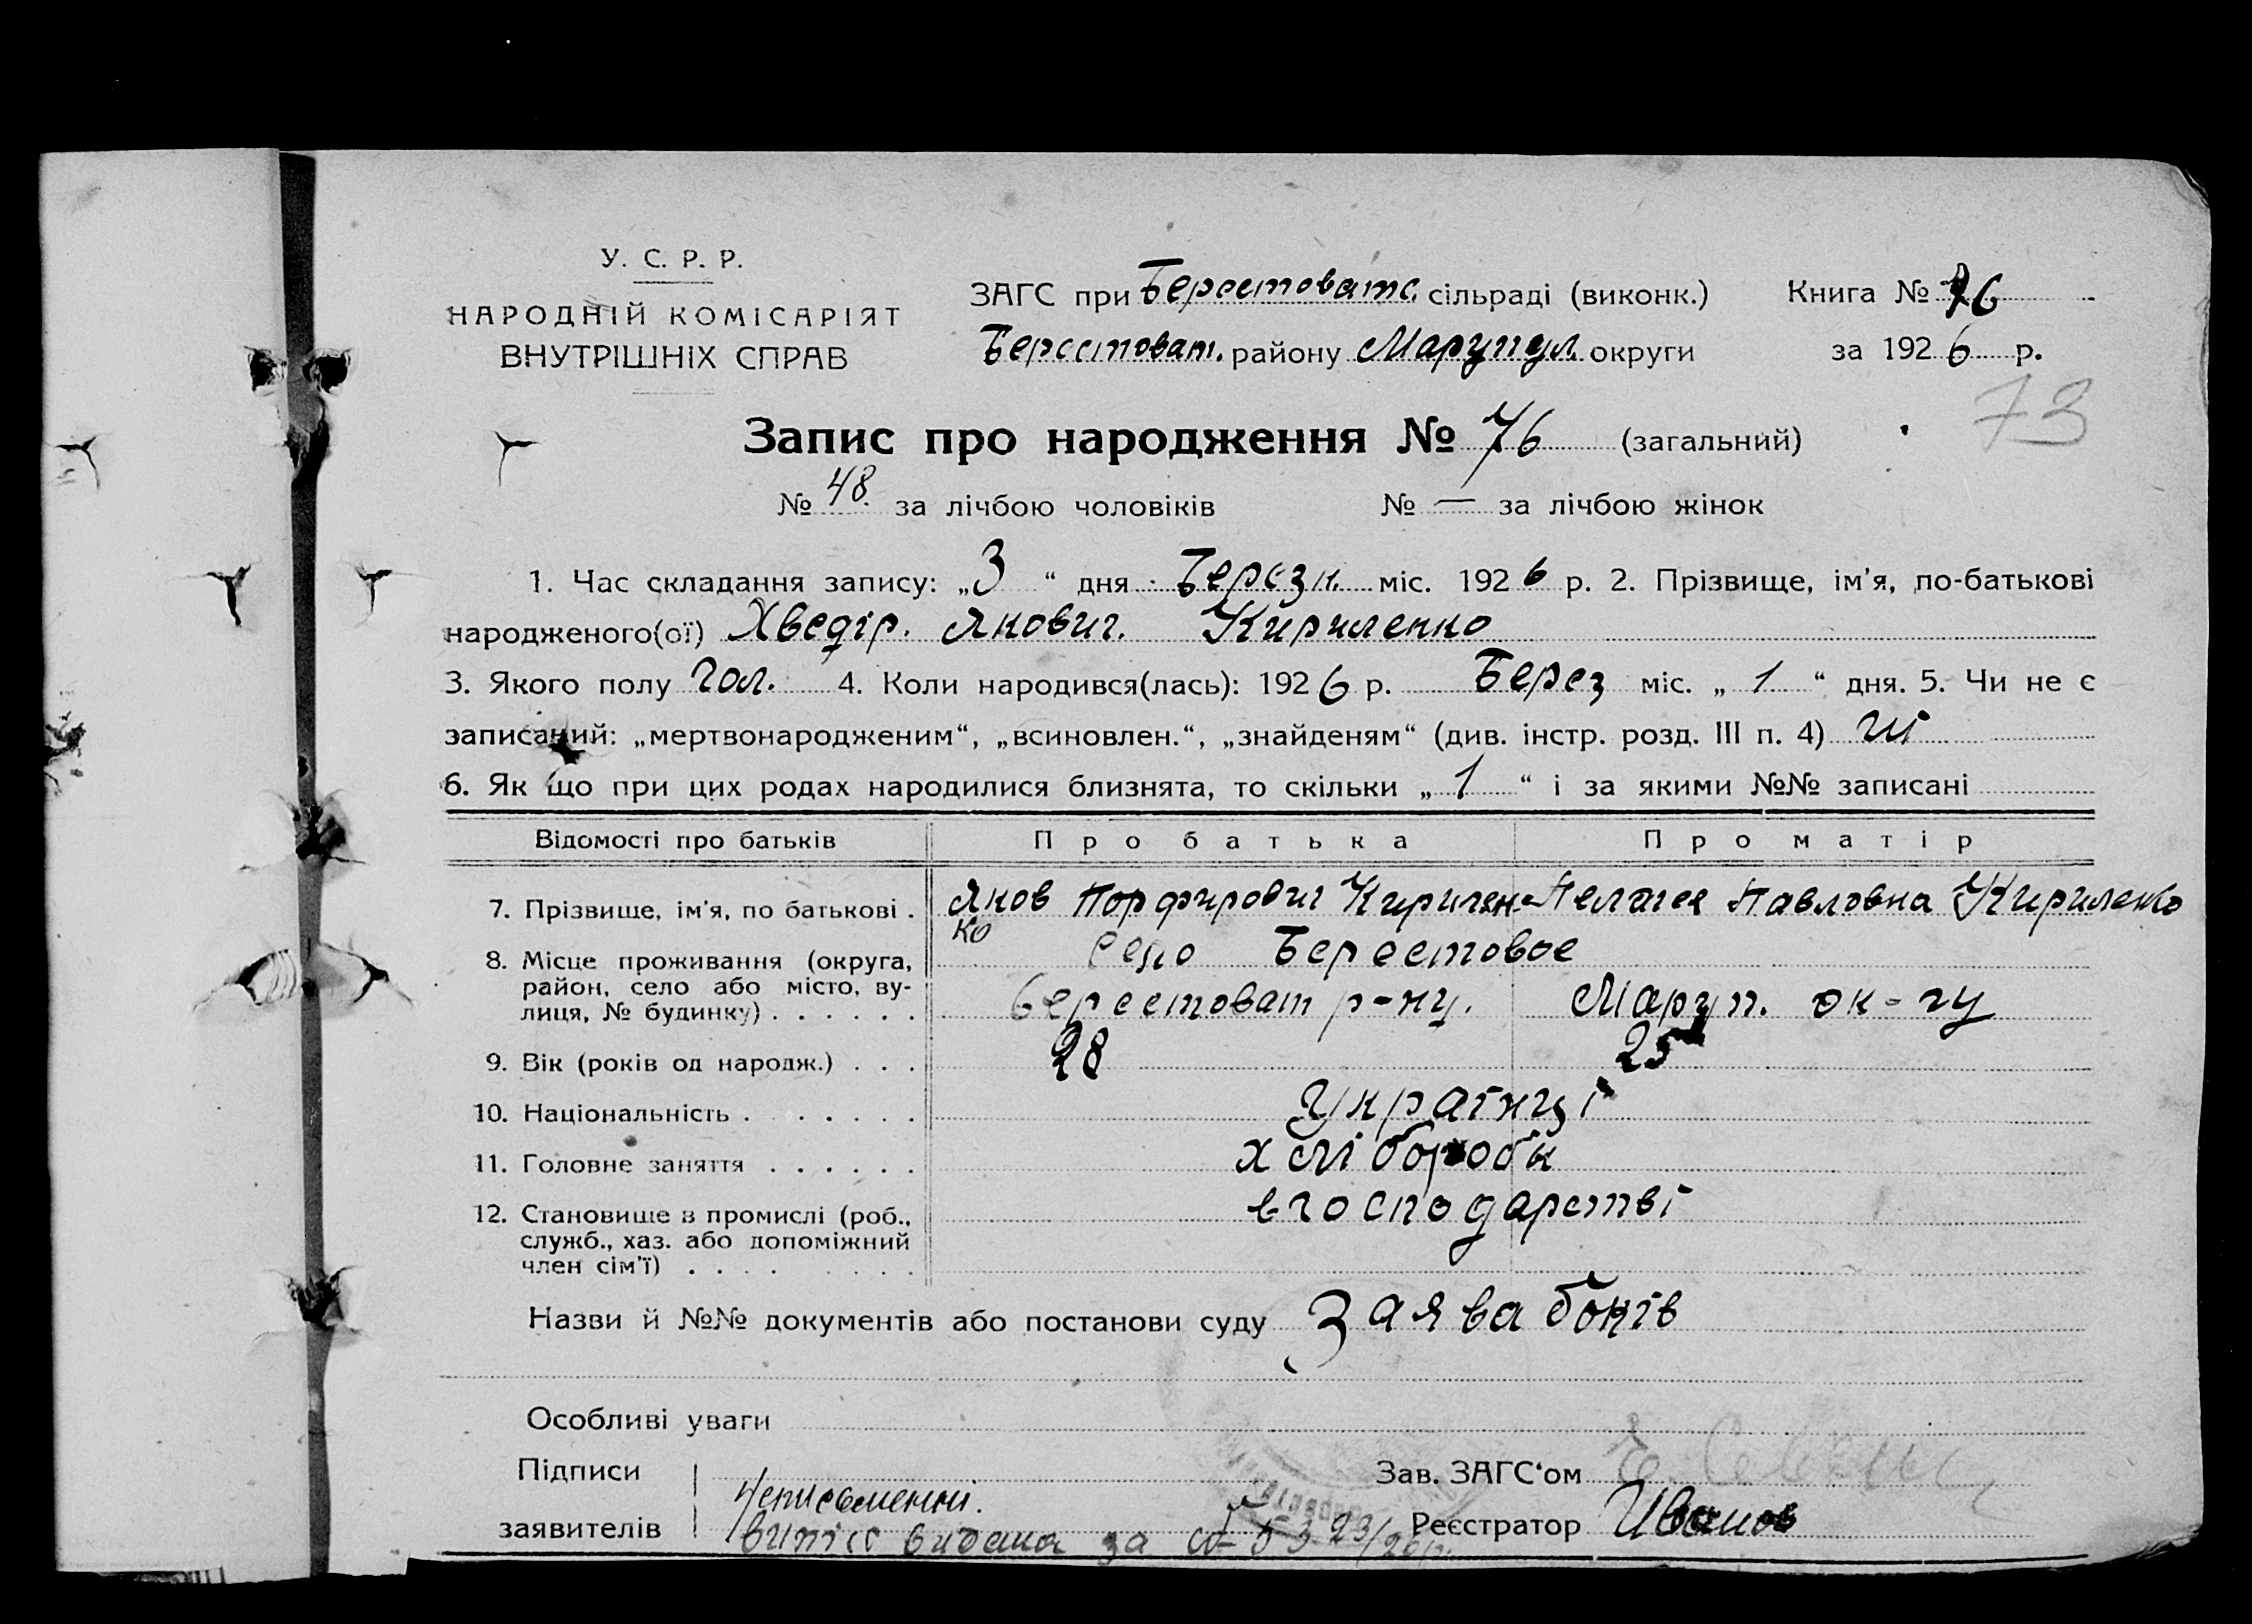 У. С. Р. Р.
НАРОДНІЙ КОМІСАРІЯТ
ВНУТРІШНІХ СПРАВ
ЗАГС при Берестоватс. сільраді (виконк.)
Берестоват. району Марупул. округи
Книга № 76
за 1926 р.
73
Запис про народження № 76 (загальний)
№ 48. за лічбою чоловіків № — за лічбою жінок
1. Час складання запису: „3“ дня Березн. міс. 1926 р. 2. Прізвище, ім'я, по-батькові
народженого(ої) Хведір. Якович. Кириленко
3. Якого полу чол. 4. Коли народився(лась): 1926 р. Берез міс. „1“ дня. 5. Чи не є
записаний: „мертвонародженим“, „всиновлен.“, „знайденям“ (див. інстр. розд. III п. 4) ні
6. Як що при цих родах народилися близнята, то скільки „1“ і за якими №№ записані
Відомості про батьків Про батька Про матір
7. Прізвище, ім'я, по батькові . Яков Порфирович Кирилен- Пелагея Павловна Кириленко
ко
8. Місце проживання (округа, район, село або місто, вулиця, № будинку) . . . . . . село Берестовое
Берестоват р-ну. Маруп. ок-гу
9. Вік (років од народж.) . . . 28 25
10. Національність . . . . . . . українці
11. Головне заняття . . . . . . хлібороби
12. Становище в промислі (роб., служб., хаз. або допоміжний член сім'ї) . . . . в господарстві
Назви й №№ документів або постанови суду Заява
Особливі уваги
Підписи
заявителів
Неписьменні.
Зав. ЗАГС'ом
Реєстратор Иванов
видана за № 53 23/